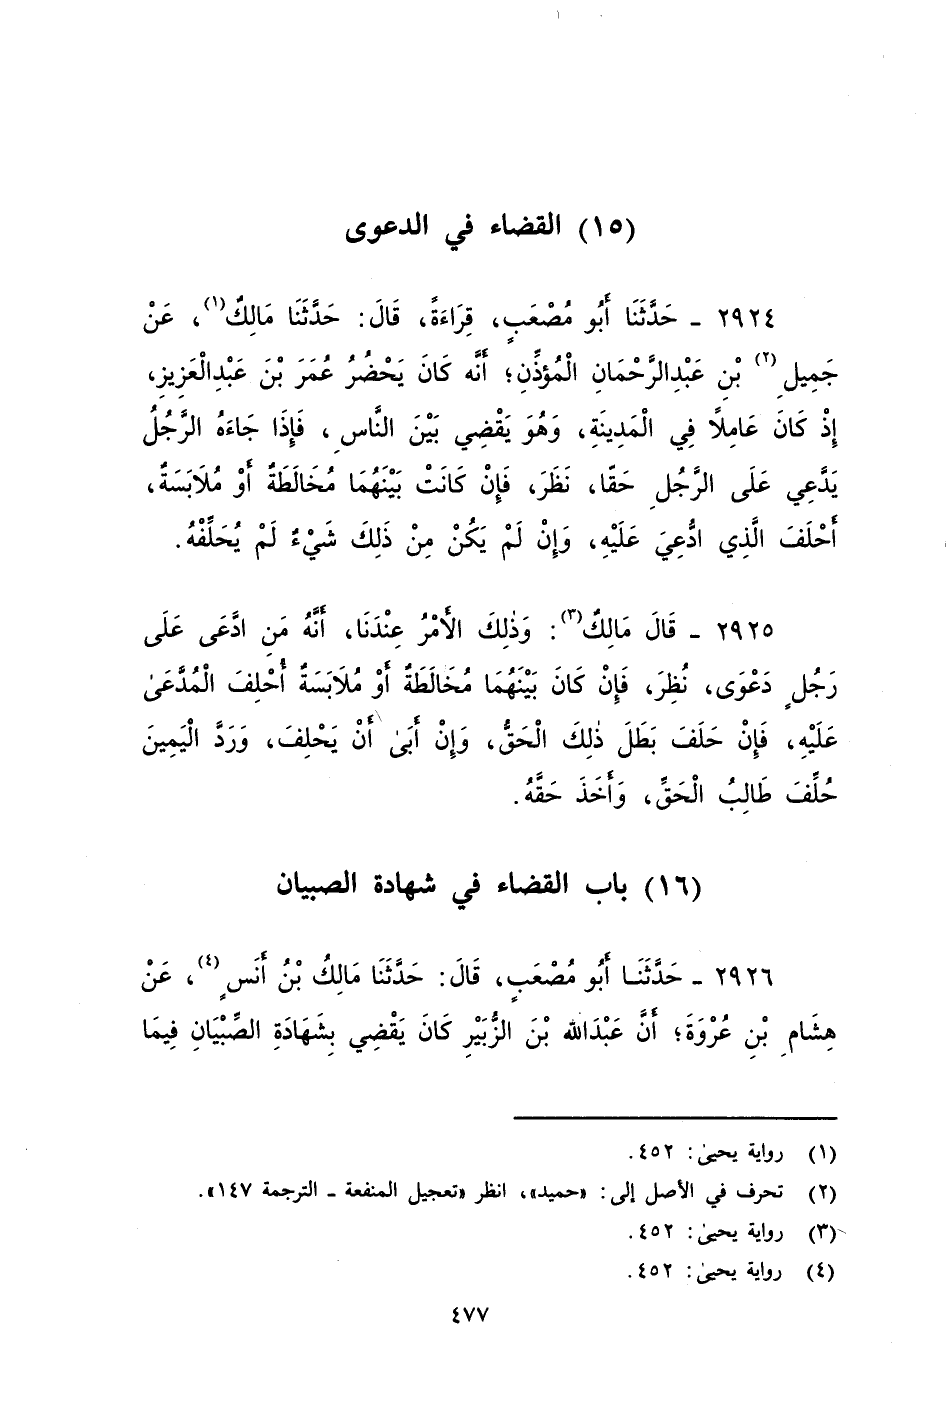 (١٥) القضاء في الدعوى
٢٩٢٤ ـ حَدَّثَنَا أَبُو مُصْعَبٍ، قِرَاءَةً، قَالَ: حَدَّثَنَا مَالِكٌ(١)، عَنْ
جَمِيلِ(٢) بْنِ عَبْدِالرَّحْمَانِ الْمُؤَذِّنِ؛ أَنَّه كَانَ يَحْضُرُ عُمَرَ بْنَ عَبْدِالْعَزِيزِ،
إِذْ كَانَ عَامِلًا فِي الْمَدِينَةِ، وَهُوَ يَقْضِي بَيْنَ النَّاسِ، فَإِذَا جَاءَهُ الرَّجُلُ
يَدَّعِي عَلَى الرَّجُلِ حَقًا، نَظَرَ، فَإِنْ كَانَتْ بَيْنَهُمَا مُخَالَطَةٌ أَوْ مُلَابَسَةٌ،
أَحْلَفَ الَّذِي ادُّعِيَ عَلَيْهِ، وَإِنْ لَمْ يَكُنْ مِنْ ذَلِكَ شَيْءٌ لَمْ يُحَلِّفْهُ.
٢٩٢٥ ـ قَالَ مَالِكٌ(٣): وَذٰلِكَ الأَمْرُ عِنْدَنَا، أَنَّهُ مَنِ ادَّعَى عَلَى
رَجُلٍ دَعْوَى، نُظِرَ، فَإِنْ كَانَ بَيْنَهُمَا مُخَالَطَةٌ أَوْ مُلَابَسَةٌ أُحْلِفَ الْمُدَّعَىٰ
عَلَيْهِ، فَإِنْ حَلَفَ بَطَلَ ذٰلِكَ الْحَقُّ، وَإِنْ أَبَىٰ أَنْ يَحْلِفَ، وَرَدَّ الْيَمِينَ
حُلِّفَ طَالِبُ الْحَقِّ، وَأَخَذَ حَقَّهُ.
(١٦) باب القضاء في شهادة الصبيان
٢٩٢٦ ـ حَدَّثَنَا أَبُو مُصْعَبٍ، قَالَ: حَدَّثَنَا مَالِكُ بْنُ أَنَسٍ(٤)، عَنْ
هِشَامِ بْنِ عُرْوَةَ؛ أَنَّ عَبْدَالله بْنَ الزُّبَيْرِ كَانَ يَقْضِي بِشَهَادَةِ الصِّبْيَانِ فِيمَا
(١) رواية يحيىٰ: ٤٥٢.
(٢) تحرف في الأصل إلى: «حميد»، انظر «تعجيل المنفعة ـ الترجمة ١٤٧».
(٣) رواية يحيىٰ: ٤٥٢.
(٤) رواية يحيىٰ: ٤٥٢.
٤٧٧